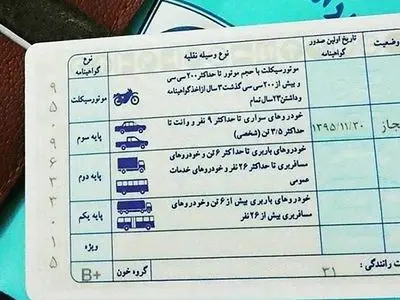 نوع گواهینامه
نوع وسیله نقلیه
تاریخ اولین صدور گواهینامه
وضعیت
موتورسیکلت
موتور سیکلت با حجم موتور تا حداکثر ۲۰۰ سی سی
و بیش از ۲۰۰ سی سی گذشت ۳ سال از اخذ گواهینامه
و داشتن ۲۳ سال تمام
پایه سوم
خودروهای سواری تا حداکثر ۹ نفر و وانت تا
حداکثر ۳/۵ تن (شخصی)
۱۳۹۵/۱۱/۳۰
مجاز
پایه دوم
خودروهای باربری تا حداکثر ۶ تن و خودروهای
مسافربری تا حداکثر ۲۶ نفر و خودروهای خدمات
عمومی
پایه یکم
خودروهای باربری بیش از ۶ تن و خودروهای
مسافربری بیش از ۲۶ نفر
ویژه
B+
گروه خون :
۳۱
ت رانندگی :
۹۵۰۹۶۳۳۰۱۵